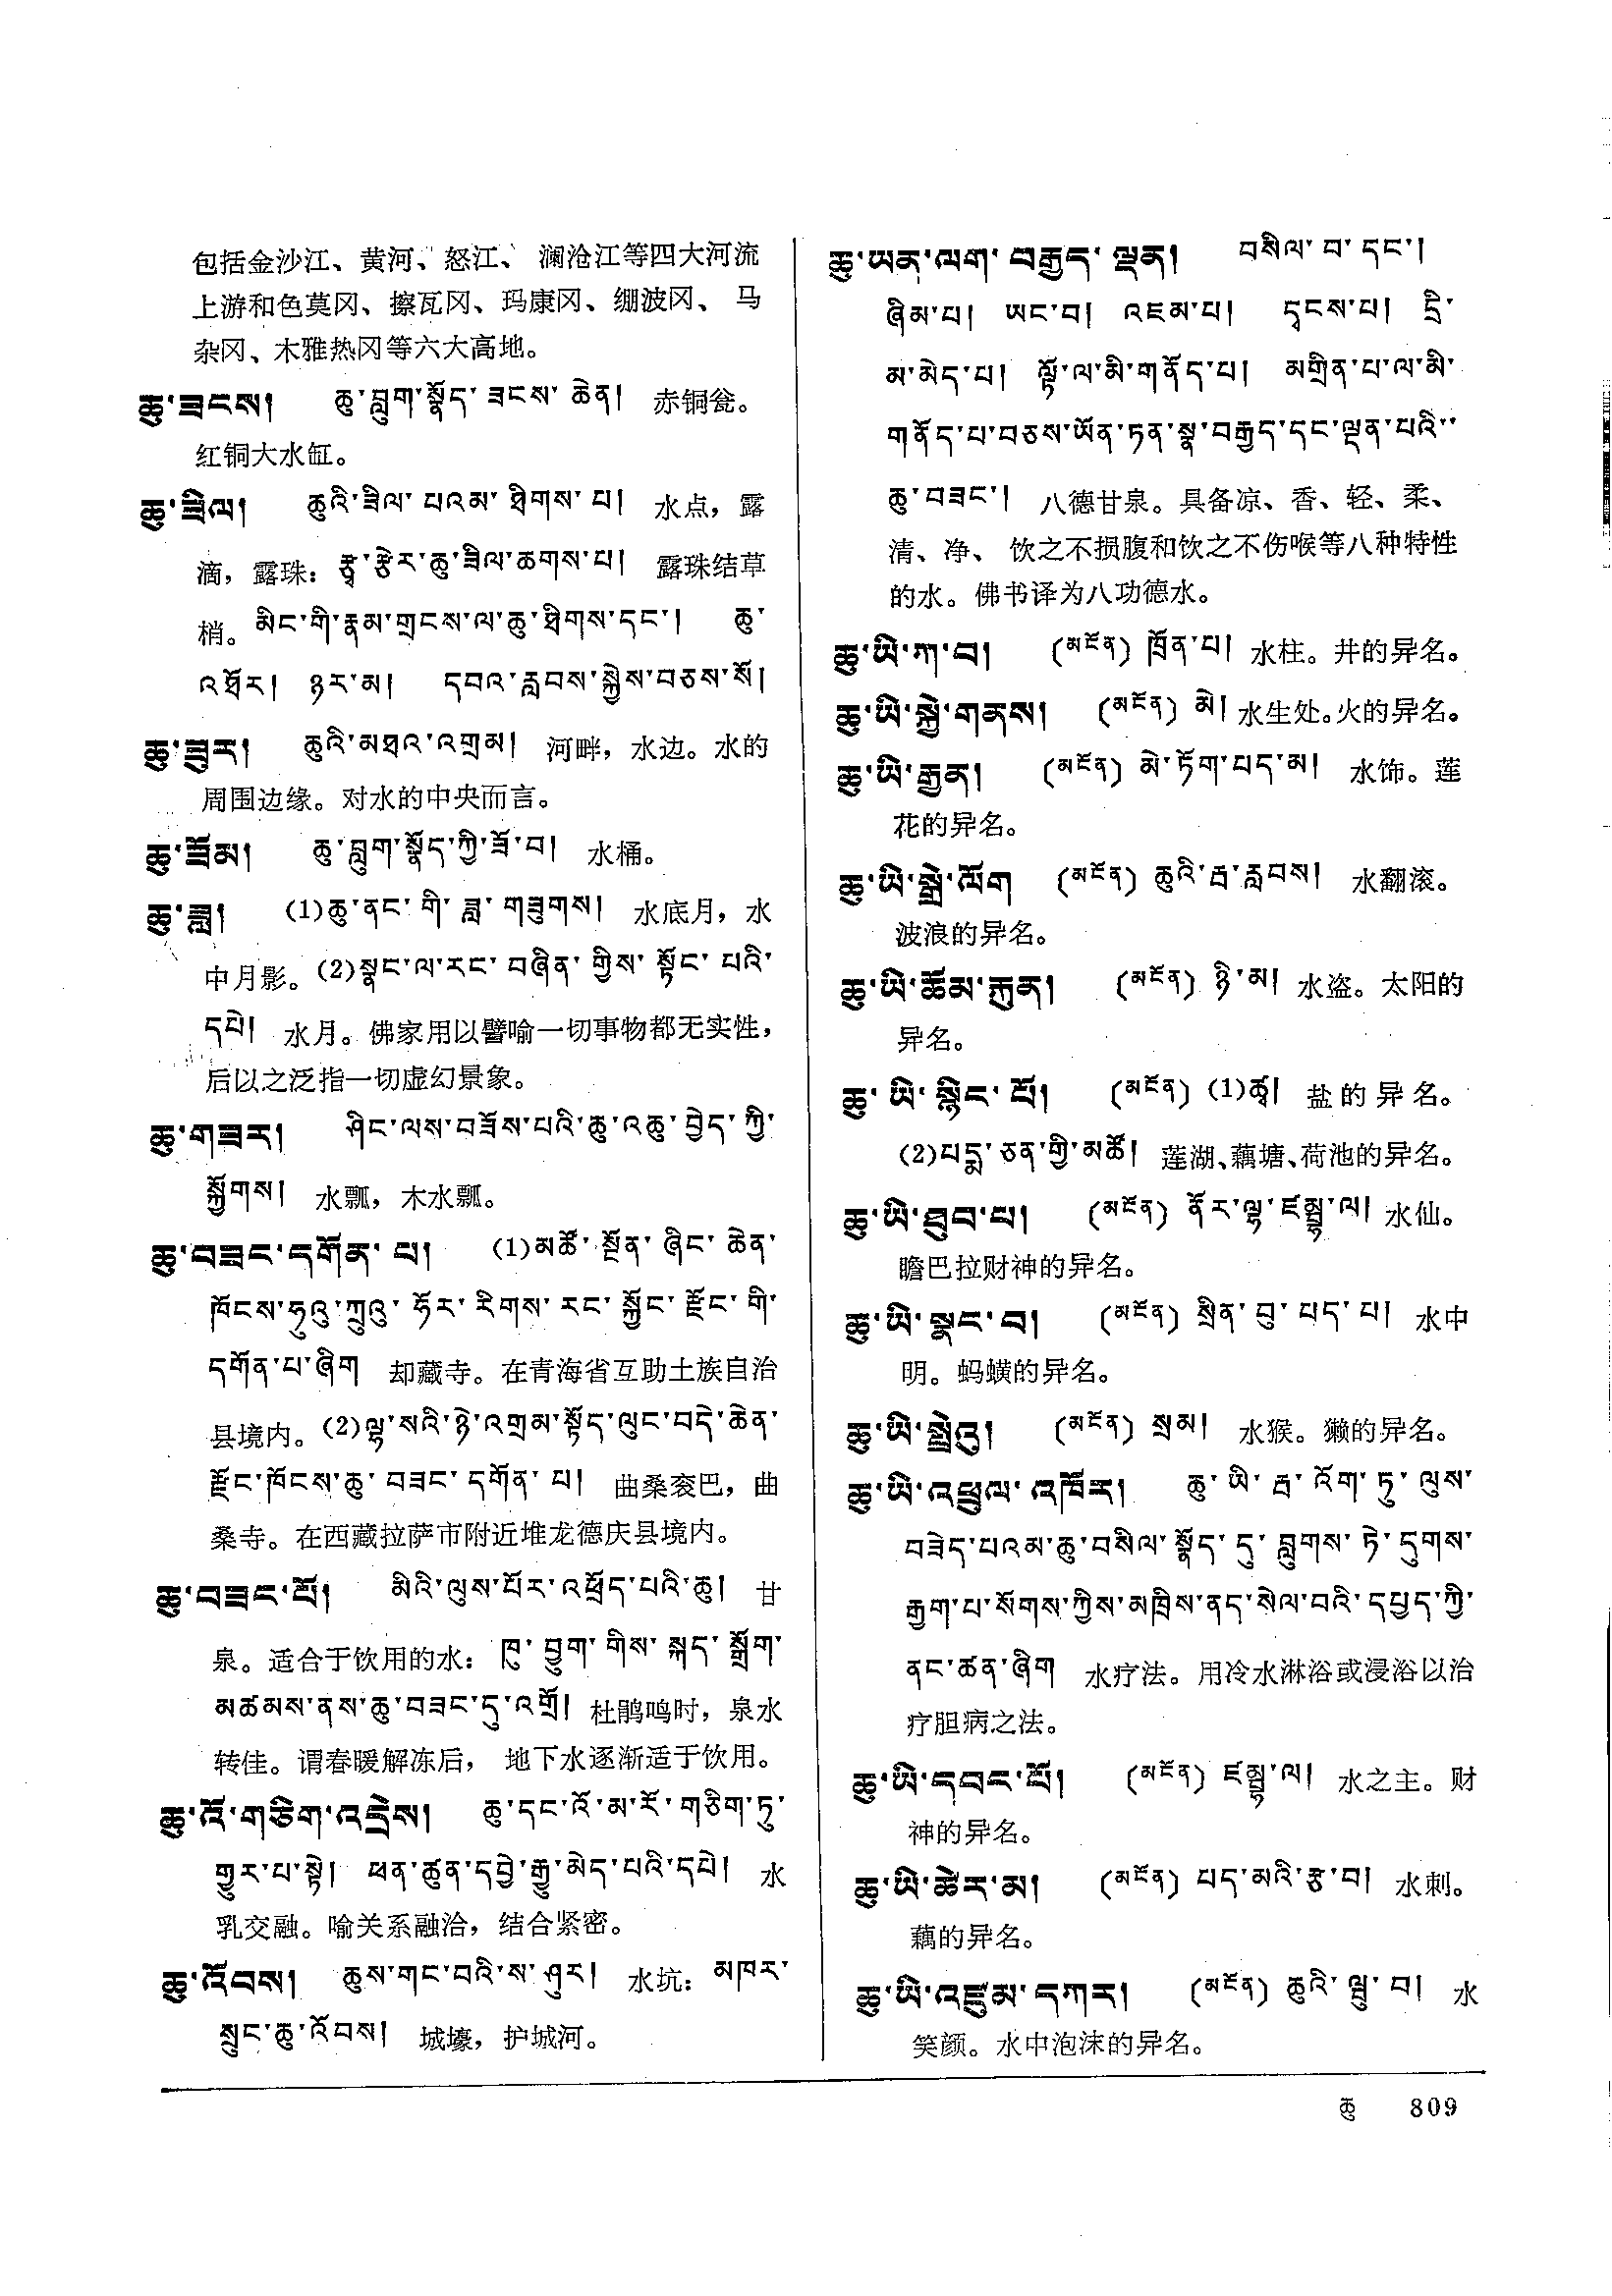 包括金沙江、黄河、怒江、澜沧江等四大河流
上游和色莫冈、擦瓦冈、玛康冈、绷波冈、马
杂冈、木雅热冈等六大高地。
ཆུ་ཟངས། ཆུ་བླུག་སྣོད་ཟངས་ཆེན། 赤铜瓮。
红铜大水缸。
ཆུ་ཟིལ། ཆུའི་ཟིལ་པའམ་ཐིགས་པ། 水点，露
滴，露珠：རྩྭ་རྩེར་ཆུ་ཟིལ་ཆགས་པ། 露珠结草
梢。མིང་གི་རྣམ་གྲངས་ལ་ཆུ་ཐིགས་དང་། ཆུ་
འཐོར། ཉར་མ། དབའ་རླབས་སྐྱེས་བཅས་སོ།
ཆུ་ཟུར། ཆུའི་མཐའ་འགྲམ། 河畔，水边。水的
周围边缘。对水的中央而言。
ཆུ་ཟོམ། ཆུ་བླུག་སྣོད་ཀྱི་ཟོ་བ། 水桶。
ཆུ་ཟླ། (1)ཆུ་ནང་གི་ཟླ་གཟུགས། 水底月，水
中月影。(2)སྣང་ལ་རང་བཞིན་གྱིས་སྟོང་པའི་
དཔེ། 水月。佛家用以譬喻一切事物都无实性，
后以之泛指一切虚幻景象。
ཆུ་གཟར། ཤིང་ལས་བཟོས་པའི་ཆུ་འཆུ་བྱེད་ཀྱི་
སྐྱོགས། 水瓢，木水瓢。
ཆུ་བཟང་དགོན་པ། (1)མཚོ་སྔོན་ཞིང་ཆེན་
ཁོངས་ཧུའུ་ཀྲུའུ་ཧོར་རིགས་རང་སྐྱོང་རྫོང་གི་
དགོན་པ་ཞིག 却藏寺。在青海省互助土族自治
县境内。(2)ལྷ་སའི་ཉེ་འགྲམ་སྟོད་ལུང་བདེ་ཆེན་
རྫོང་ཁོངས་ཆུ་བཟང་དགོན་པ། 曲桑衮巴，曲
桑寺。在西藏拉萨市附近堆龙德庆县境内。
ཆུ་བཟང་པོ། མིའི་ལུས་པོར་འཕྲོད་པའི་ཆུ། 甘
泉。适合于饮用的水：ཁུ་བྱུག་གིས་སྐད་སྒྲོག་
མཚམས་ནས་ཆུ་བཟང་དུ་འགྲོ། 杜鹃鸣时，泉水
转佳。谓春暖解冻后，地下水逐渐适于饮用。
ཆུ་འོ་གཅིག་འདྲེས། ཆུ་དང་འོ་མ་རོ་གཅིག་ཏུ་
གྱུར་པ་སྟེ། ཕན་ཚུན་དབྱེ་རྒྱུ་མེད་པའི་དཔེ། 水
乳交融。喻关系融洽，结合紧密。
ཆུ་འོབས། ཆུས་གང་བའི་ས་ཤུར། 水坑：མཁར་
སྲུང་ཆུ་འོབས། 城壕，护城河。
ཆུ་ཡན་ལག་བརྒྱད་ལྡན། བསིལ་བ་དང་།
ཞིམ་པ། ཡང་བ། འཇམ་པ། དྭངས་པ། དྲི་
མ་མེད་པ། ལྟོ་ལ་མི་གནོད་པ། མགྲིན་པ་ལ་མི་
གནོད་པ་བཅས་ཡོན་ཏན་སྣ་བརྒྱད་དང་ལྡན་པའི་
ཆུ་བཟང་། 八德甘泉。具备凉、香、轻、柔、
清、净、饮之不损腹和饮之不伤喉等八种特性
的水。佛书译为八功德水。
ཆུ་ཡི་ཀ་བ། (མངོན) ཁྲོན་པ། 水柱。井的异名。
ཆུ་ཡི་སྐྱེ་གནས། (མངོན) མེ། 水生处。火的异名。
ཆུ་ཡི་རྒྱན། (མངོན) མེ་ཏོག་པད་མ། 水饰。莲
花的异名。
ཆུ་ཡི་སྒྲེ་ལོག (མངོན) ཆུའི་རྦ་རླབས། 水翻滚。
波浪的异名。
ཆུ་ཡི་ཆོམ་རྐུན། (མངོན) ཉི་མ། 水盗。太阳的
异名。
ཆུ་ཡི་སྙིང་པོ། (མངོན) (1)ཚྭ། 盐的异名。
(2)པདྨ་ཅན་གྱི་མཚོ། 莲湖、藕塘、荷池的异名。
ཆུ་ཡི་ཐུབ་པ། (མངོན) ནོར་ལྷ་ཛམྦྷ་ལ། 水仙。
瞻巴拉财神的异名。
ཆུ་ཡི་སྣང་བ། (མངོན) སྲིན་བུ་པད་པ། 水中
明。蚂蟥的异名。
ཆུ་ཡི་སྤྲེའུ། (མངོན) སྲམ། 水猴。獭的异名。
ཆུ་ཡི་འཕྲུལ་འཁོར། ཆུ་ཡི་རྦ་འོག་ཏུ་ལུས་
བཟེད་པའམ་ཆུ་བསིལ་སྣོད་དུ་བླུགས་ཏེ་དུགས་
རྒྱག་པ་སོགས་ཀྱིས་མཁྲིས་ནད་སེལ་བའི་དཔྱད་ཀྱི་
ནང་ཚན་ཞིག 水疗法。用冷水淋浴或浸浴以治
疗胆病之法。
ཆུ་ཡི་དབང་པོ། (མངོན) ཛམྦྷ་ལ། 水之主。财
神的异名。
ཆུ་ཡི་ཚེར་མ། (མངོན) པད་མའི་རྩ་བ། 水刺。
藕的异名。
ཆུ་ཡི་འཛུམ་དཀར། (མངོན) ཆུའི་ལྦུ་བ། 水
笑颜。水中泡沫的异名。
ཆུ 809